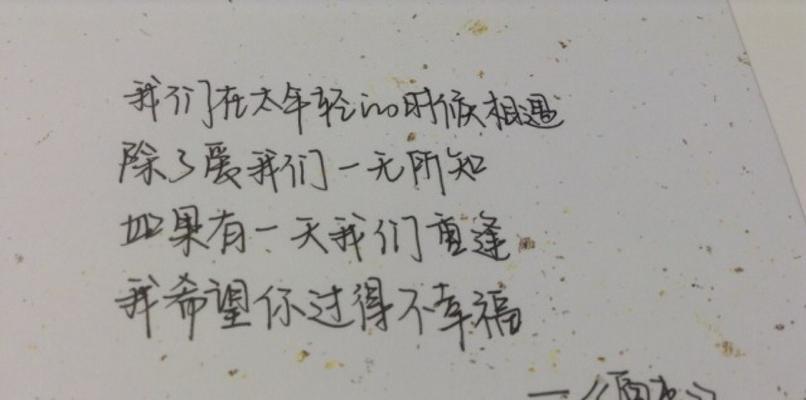 我们在太年轻的时候相遇
除了爱我们一无所知
如果有一天我们重逢
我希望你过得不幸福